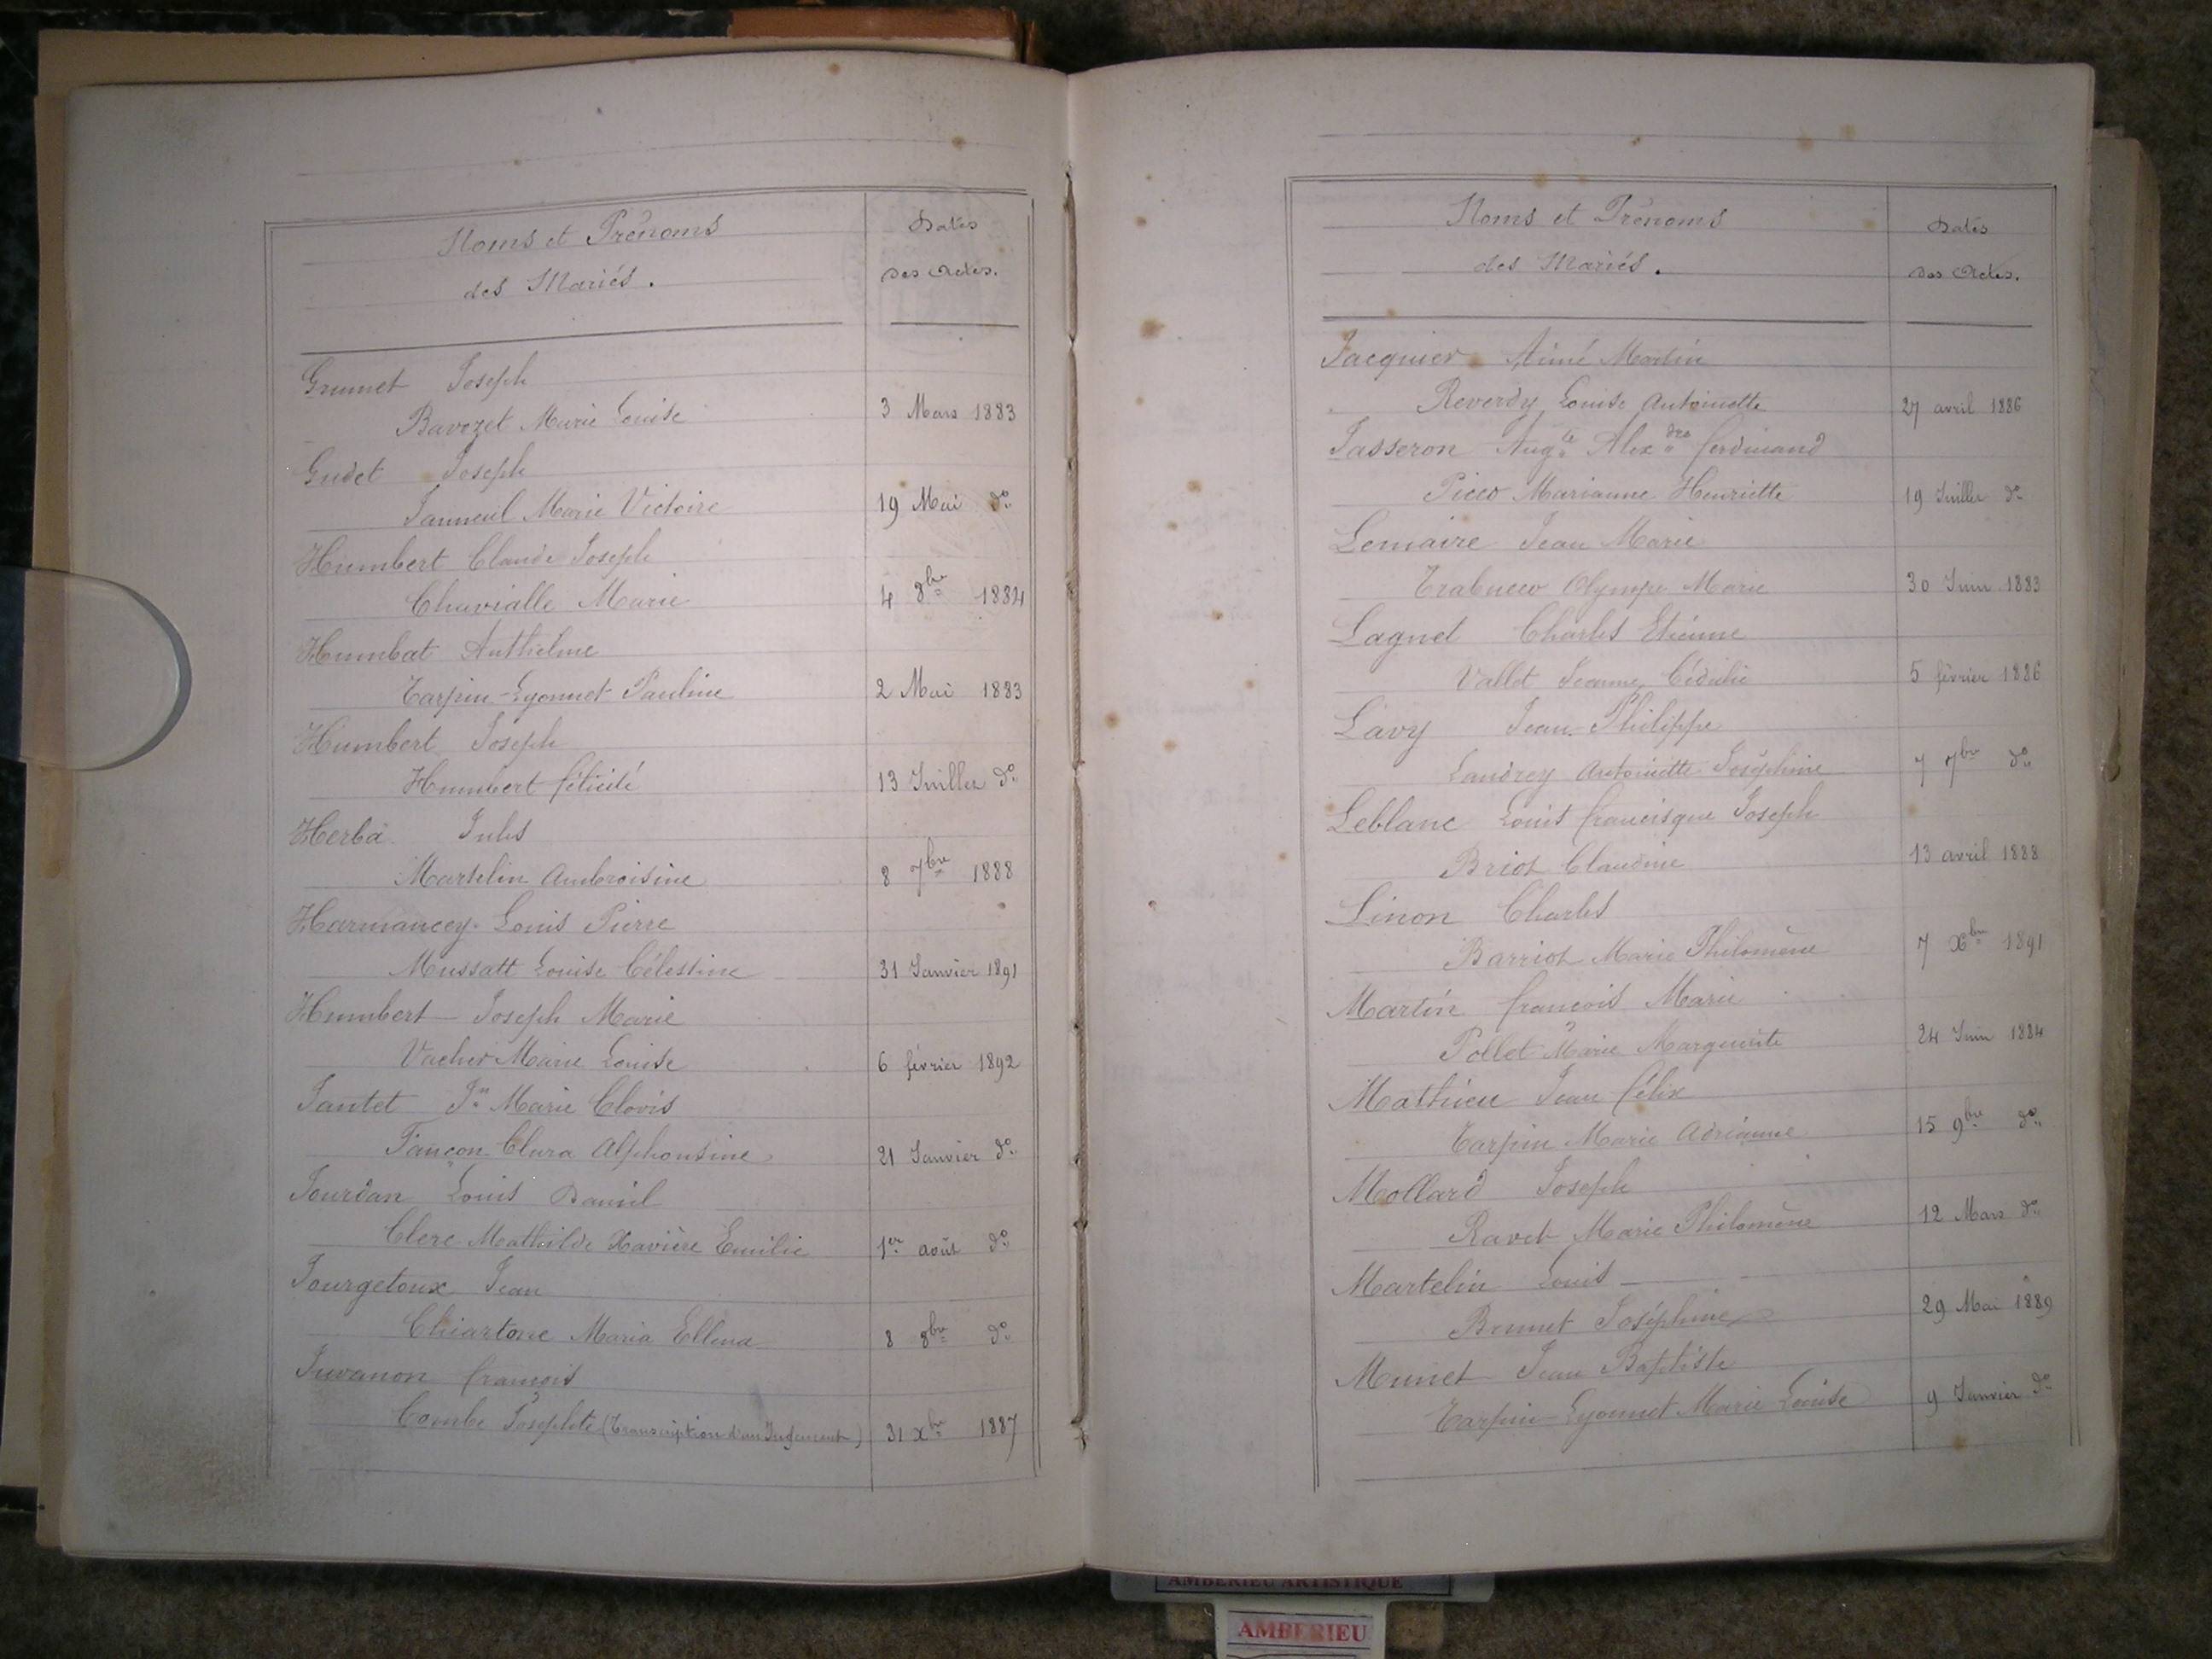 Noms et Prénoms
des Mariés.
Dates
des Actes.
Grumet Joseph
Bavozet Marie Louise 3 Mars 1883
Gudet Joseph
Janneul Marie Victoire 19 Mai do
Humbert Claude Joseph
Chavialle Marie 4 8bre 1884
Humbat Anthelme
Tarpin-Lyonnet Pauline 2 Mai 1883
Humbert Joseph
Humbert félicité 13 Juillet do
Herba Jules
Martelin Ambroisine 8 7bre 1888
Harmancey Louis Pierre
Mussatt Louise Célestine 31 Janvier 1891
Humbert Joseph Marie
Vacher Marie Louise 6 février 1892
Jantet Jn Marie Clovis
Tançon Clara Alphonsine 21 Janvier do
Jourdan Louis Daniel
Clerc Mathilde Xavière Emilie 1er août do
Jourgetoux Jean
Chiartone Maria Ellena 8 8bre do
Juvanon françois
Combe Josephte (Transcription d'un Jugement) 31 Xbre 1887
Noms et Prénoms
des Mariés.
Dates
des Actes.
Jacquier Aimé Martin
Reverdy Louise Antoinette 27 avril 1886
Jasseron Augte Alexdre ferdinand
Picco Marianne Henriette 19 Juillet do
Lemaire Jean Marie
Trabucco Olympe Marie 30 Juin 1883
Lagnel Charles Etienne
Vallet Jeanne 5 février 1886
Lavy Jean Philippe
Landrey Antoinette Joséphine 7 7bre do
Leblanc Louis francisque Joseph
Briot Claudine 13 avril 1888
Linon Charles
Barriot Marie Philomène 7 Xbre 1891
Martin francois Marie
Pollet Marie Marguerite 24 Juin 1884
Mathieu Jean félix
Tarpin Marie Adrianne 15 9bre do
Mollard Joseph
Ravet Marie Philomène 12 Mars do
Martelin Louis
Bonnet Joséphine 29 Mai 1889
Munet Jean Baptiste
Tarpin-Lyonnet Marie Louise 9 Janvier do
AMBERIEU ARTISTIQUE
AMBERIEU